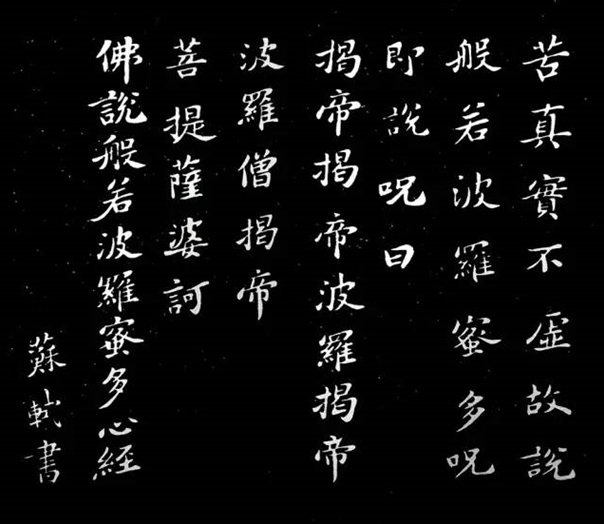 苦真實不虛故說
般若波羅蜜多呪
即說呪曰
揭帝揭帝波羅揭帝
波羅僧揭帝
菩提薩婆訶
佛說般若波羅蜜多心經
蘇軾書